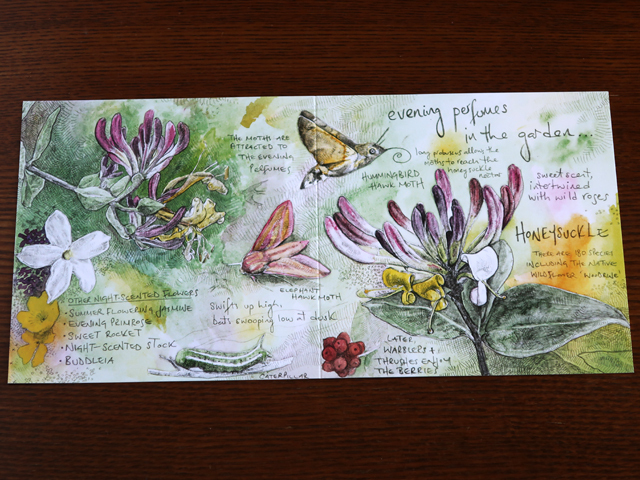 THE MOTHS ARE
ATTRACTED TO
THE EVENING
PERFUMES
OTHER NIGHT-SCENTED FLOWERS
• SUMMER FLOWERING JASMINE
• EVENING PRIMROSE
• SWEET ROCKET
• NIGHT-SCENTED STOCK
• BUDDLEIA
ELEPHANT
HAWK MOTH
Swifts up high,
bats swooping low at dusk
CATERPILLAR
evening perfumes
in the garden...
HUMMINGBIRD
HAWK MOTH
long proboscis allows the
moths to reach the
honeysuckle
nectar
sweet scent,
intertwined
with wild roses
HONEYSUCKLE
THERE ARE 180 SPECIES
INCLUDING THE NATIVE
WILDFLOWER 'WOODBINE'
LATER,
WARBLERS +
THRUSHES ENJOY
THE BERRIES